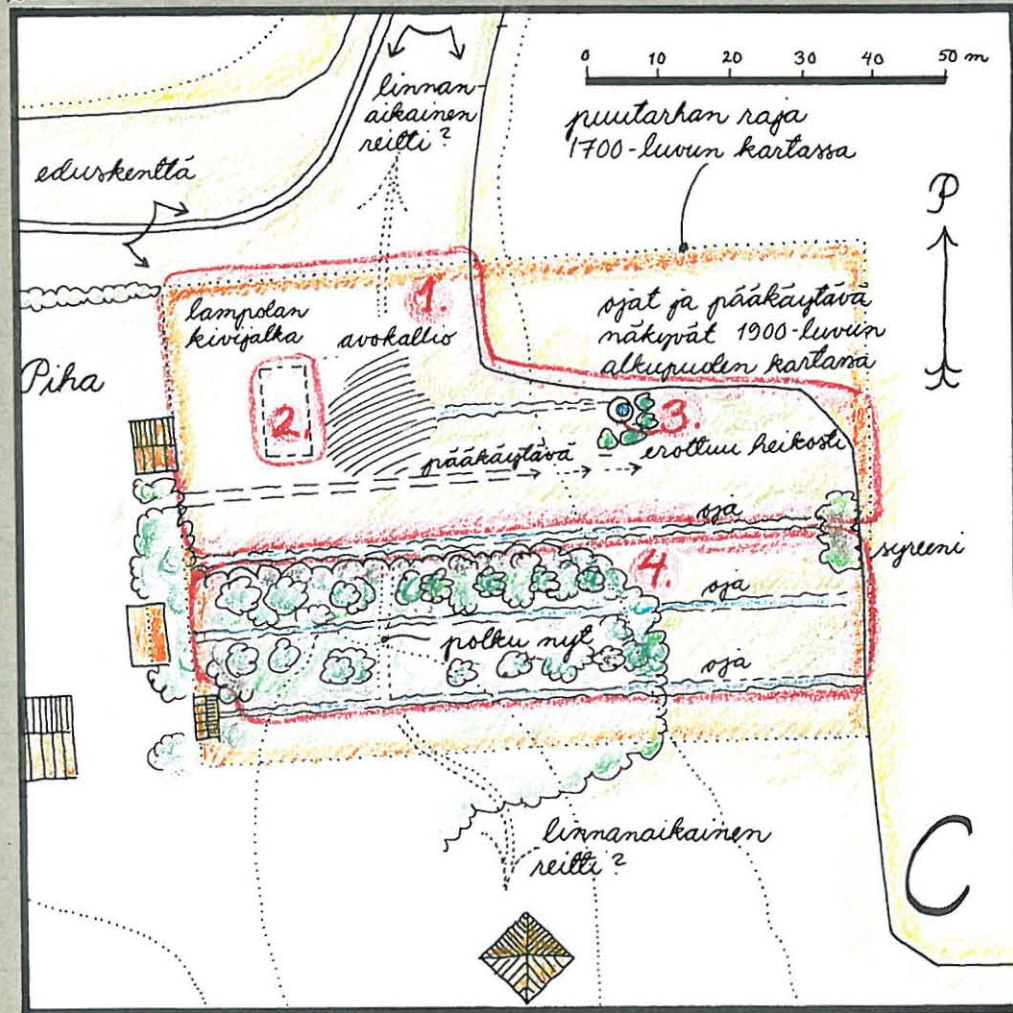 0 10 20 30 40 50 m
linnan-
aikainen
reitti?
puutarhan raja
1700-luvun kartassa
eduskenttä
P
1.
lampolan
kivijalka
avokallio
ojat ja pääkäytävä
näkyvät 1900-luvun
alkupuolen kartassa
Piha
2.
3.
pääkäytävä
erottuu heikosti
oja
syreeni
4.
oja
polku nyt
oja
linnanaikainen
reitti?
C